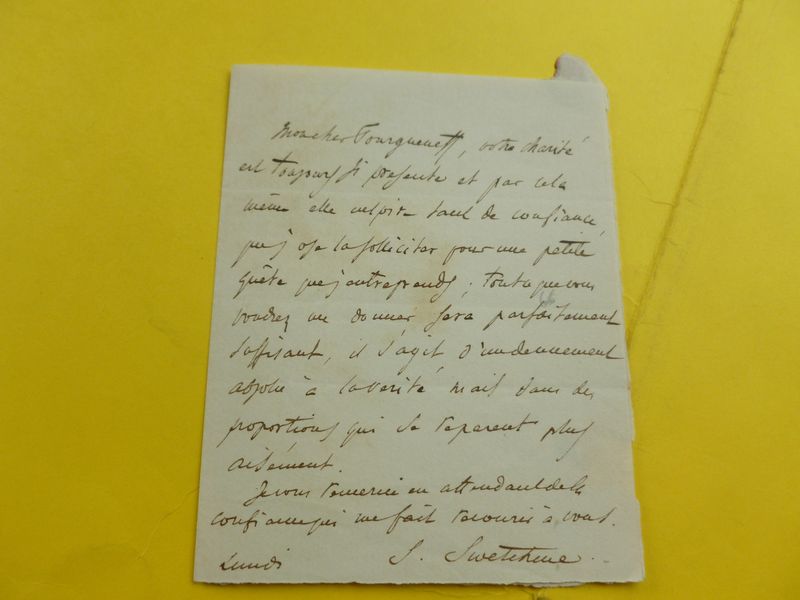 Mon cher Tourgueneff, votre charité
est toujours si présente et par cela
même elle inspire tant de confiance,
que j ose la solliciter pour une petite
quête que j'entreprends ; tout ce que vous
voudrez me donner sera parfaitement
suffisant, il s'agit d'un dennement
absolu à la vérité mais dans des
proportions qui se réparent plus
aisément.
Je vous remercie en attendant de la
confiance qui me fait recourir à vous.
Lundi S. Swetchine.